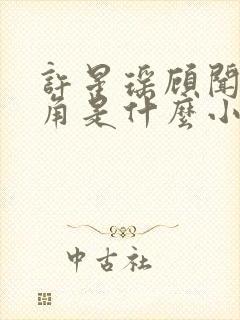 許星瑤顧聞
角是什麼小
中古社